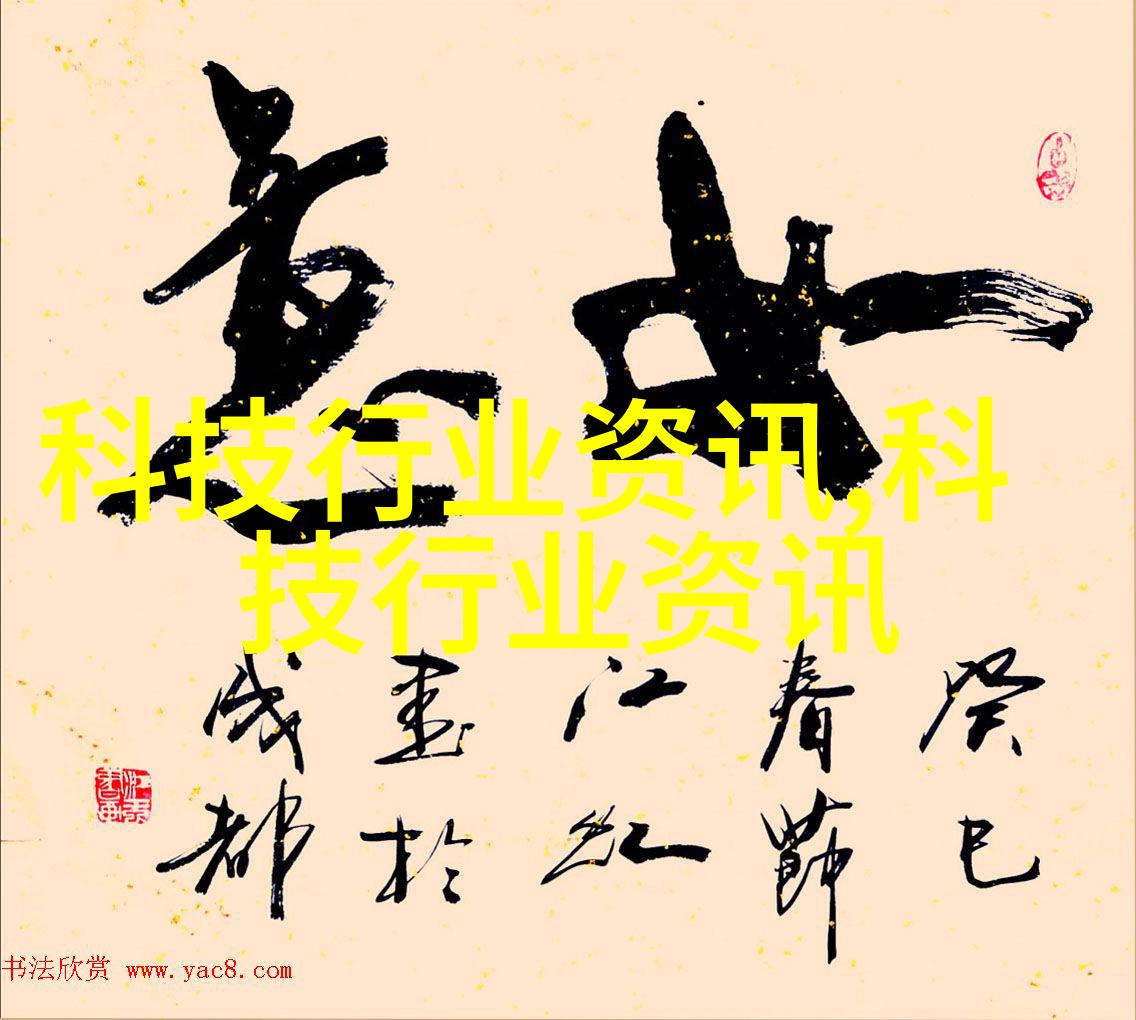 如意
科技行业资讯,科
技行业资讯
癸巳
春節
江红
書於
成都
书法欣赏 www.yac8.com